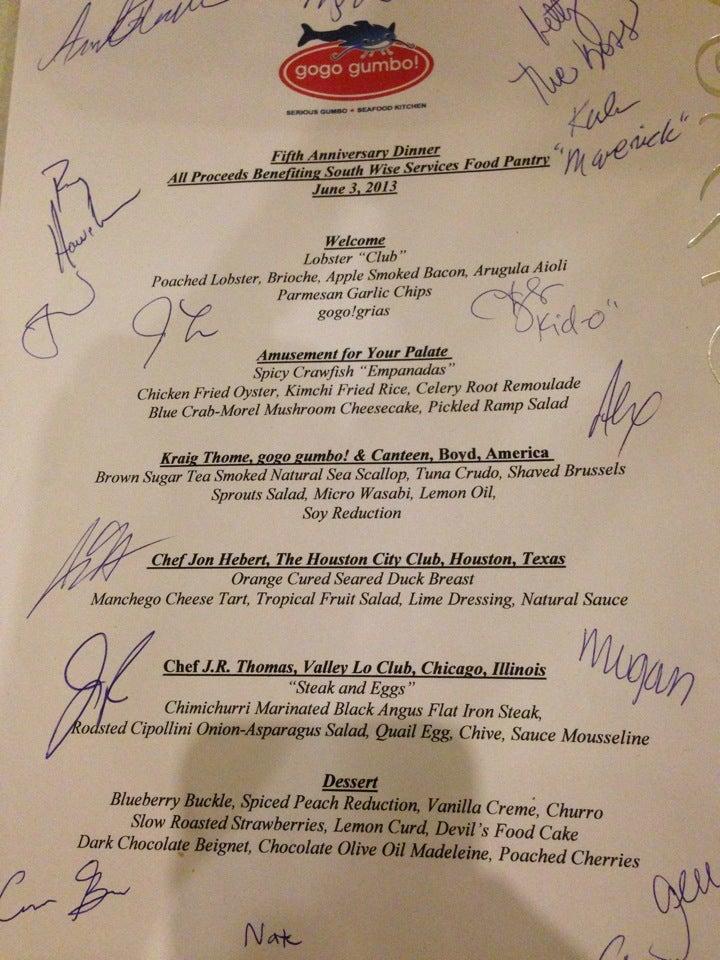 Letty
The Boss
gogo gumbo!
SERIOUS GUMBO + SEAFOOD KITCHEN
"Maverick"
Fifth Anniversary Dinner
All Proceeds Benefiting South Wise Services Food Pantry
June 3, 2013
Welcome
Lobster "Club"
Poached Lobster, Brioche, Apple Smoked Bacon, Arugula Aioli
Parmesan Garlic Chips
gogo!grias
"Kid-o"
Amusement for Your Palate
Spicy Crawfish "Empanadas"
Chicken Fried Oyster, Kimchi Fried Rice, Celery Root Remoulade
Blue Crab-Morel Mushroom Cheesecake, Pickled Ramp Salad
Alex
Kraig Thome, gogo gumbo! & Canteen, Boyd, America
Brown Sugar Tea Smoked Natural Sea Scallop, Tuna Crudo, Shaved Brussels
Sprouts Salad, Micro Wasabi, Lemon Oil,
Soy Reduction
Chef Jon Hebert, The Houston City Club, Houston, Texas
Orange Cured Seared Duck Breast
Manchego Cheese Tart, Tropical Fruit Salad, Lime Dressing, Natural Sauce
Megan
Chef J.R. Thomas, Valley Lo Club, Chicago, Illinois
"Steak and Eggs"
Chimichurri Marinated Black Angus Flat Iron Steak,
Roasted Cipollini Onion-Asparagus Salad, Quail Egg, Chive, Sauce Mousseline
Dessert
Blueberry Buckle, Spiced Peach Reduction, Vanilla Creme, Churro
Slow Roasted Strawberries, Lemon Curd, Devil's Food Cake
Dark Chocolate Beignet, Chocolate Olive Oil Madeleine, Poached Cherries
Nate